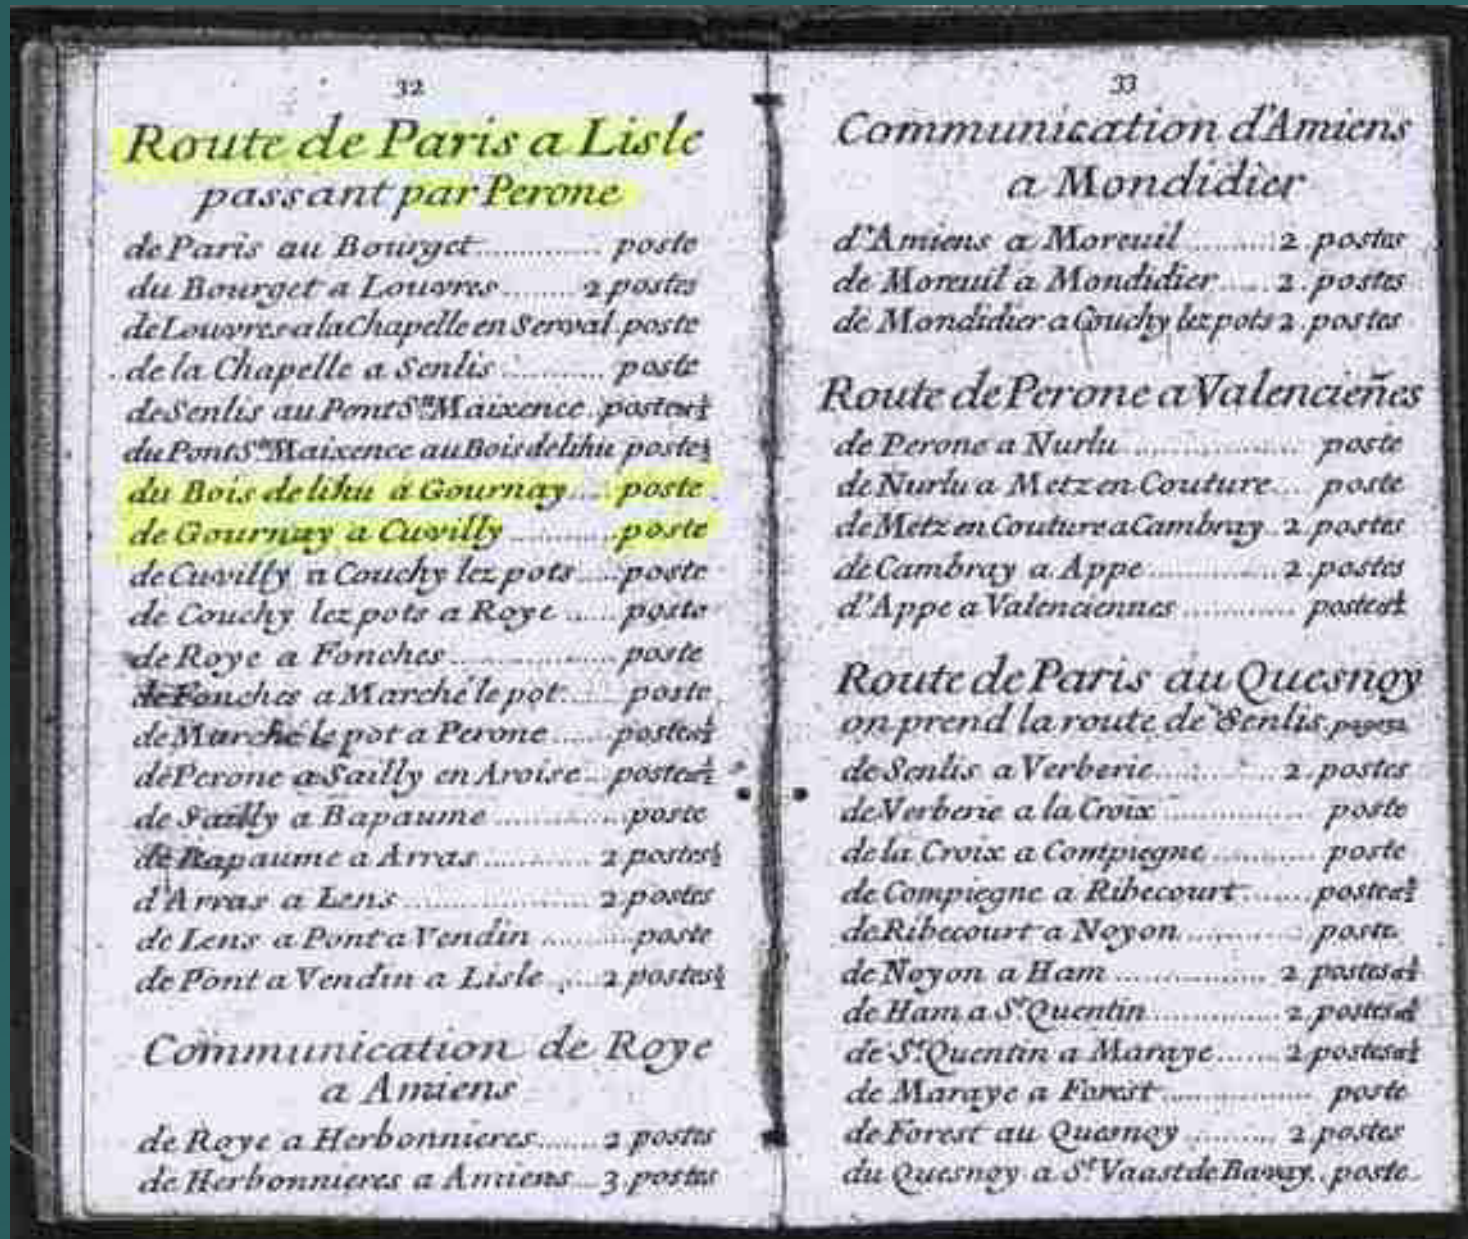 32
Route de Paris a Lisle
passant par Perone
de Paris au Bourget............. poste
du Bourget a Louvres........ 2 postes
de Louvres a la Chapelle en Serval. poste
de la Chapelle a Senlis........... poste
de Senlis au Pont Ste Maixence.. poste et ½
du Pont Ste Maixence au Bois de lihu poste ½
du Bois de lihu a Gournay..... poste
de Gournay a Cuvilly........... poste
de Cuvilly a Couchy lez pots..... poste
de Couchy lez pots a Roye...... poste
de Roye a Fonches................. poste
de Fonches a Marché le pot...... poste
de Marché le pot a Perone...... poste et ½
de Perone a Sailly en Aroise... poste et ½
de Sailly a Bapaume.............. poste
de Bapaume a Arras............ 2 postes ½
d'Arras a Lens.................... 2 postes
de Lens a Pont a Vendin......... poste
de Pont a Vendin a Lisle..... 2 postes ½
Communication de Roye
a Amiens
de Roye a Herbonnieres....... 2 postes
de Herbonnieres a Amiens... 3 postes
33
Communication d'Amiens
a Mondidier
d'Amiens a Moreuil......... 2 postes
de Moreuil a Mondidier..... 2 postes
de Mondidier a Couchy lez pots 2 postes
Route de Perone a Valencieñes
de Perone a Nurlu.................... poste
de Nurlu a Metz en Couture... poste
de Metz en Couture a Cambray.. 2 postes
de Cambray a Appe............... 2 postes
d'Appe a Valenciennes............. poste et ½
Route de Paris au Quesnoy
on prend la route de Senlis, page 32
de Senlis a Verberie............. 2 postes
de Verberie a la Croix.................. poste
de la Croix a Compiegne............ poste
de Compiegne a Ribecourt....... poste et ½
de Ribecourt a Noyon.............. poste
de Noyon a Ham.................. 2 postes et ½
de Ham a St Quentin............... 2 postes et ½
de St Quentin a Maraye...... 2 postes et ½
de Maraye a Forest................. poste
de Forest au Quesnoy.......... 2 postes
du Quesnoy a St Vaast de Bavay.. poste